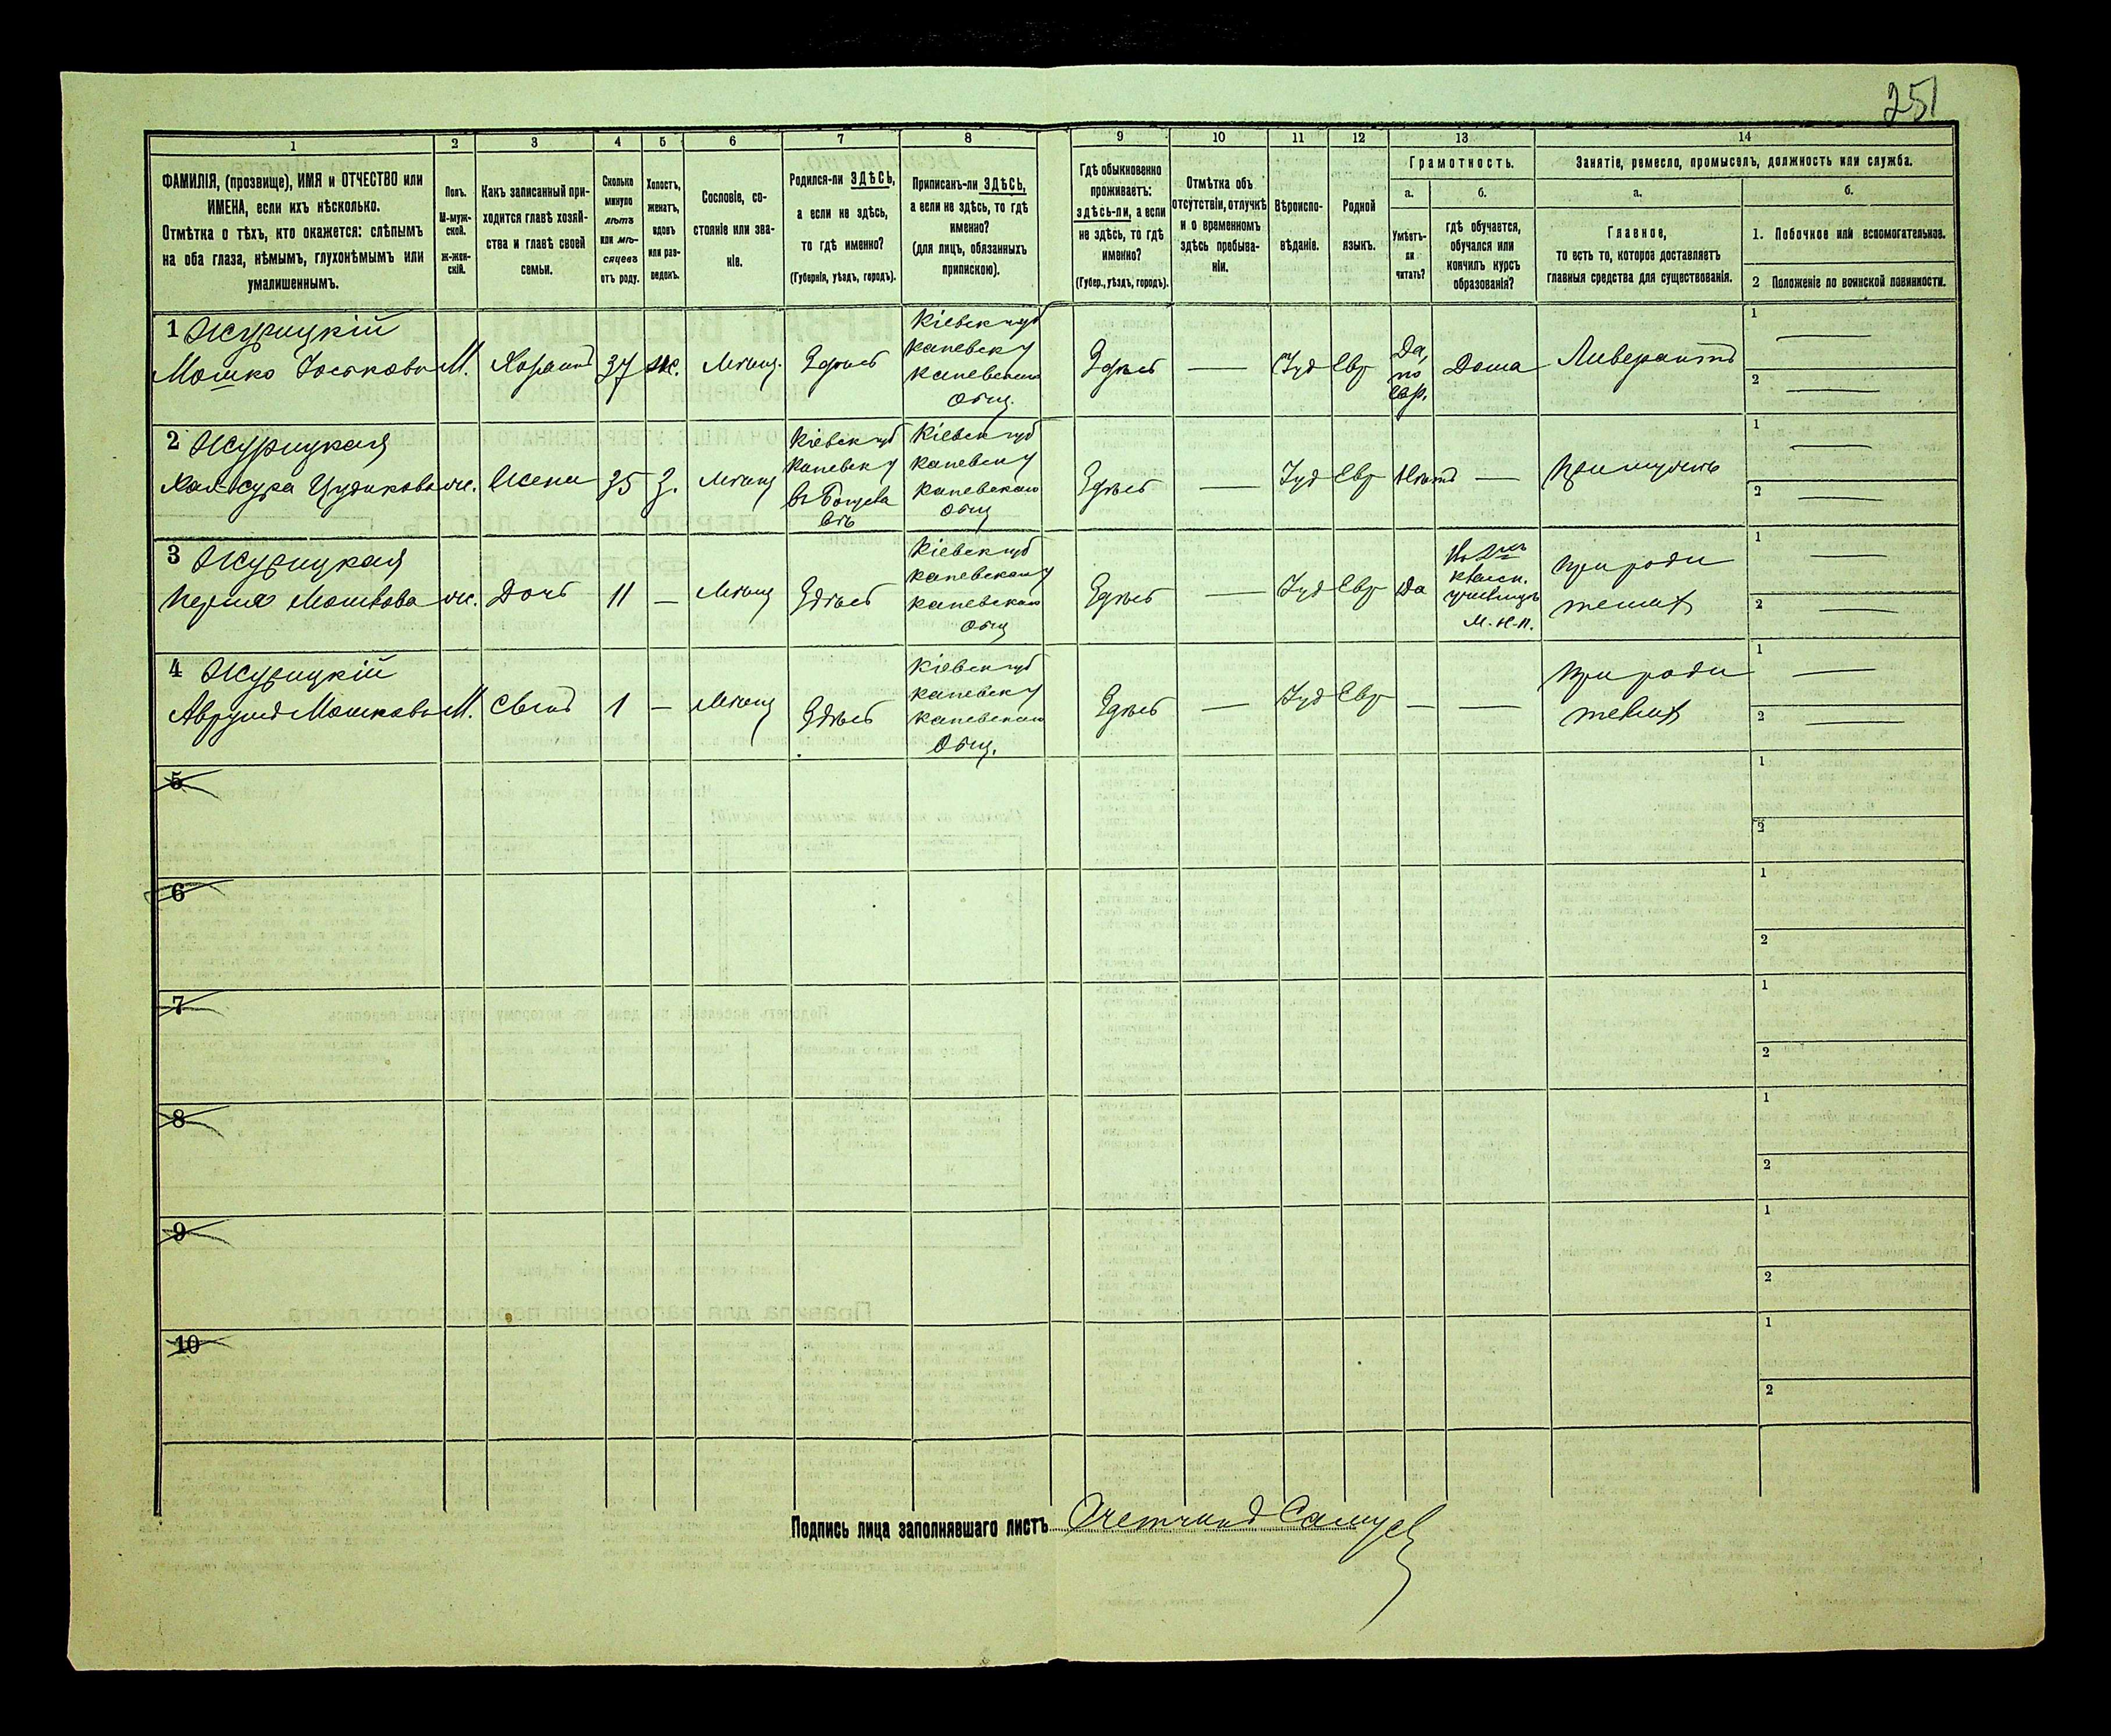 251
1
2
3
4
5
6
7
8
9
10
11
12
13
14
ФАМИЛІЯ, (прозвище), ИМЯ и ОТЧЕСТВО или
ИМЕНА, если ихъ нѣсколько.
Отмѣтка о тѣхъ, кто окажется: слѣпымъ
на оба глаза, нѣмымъ, глухонѣмымъ или
умалишеннымъ.
Полъ.
М-муж-
ской.
ж-жен-
скій.
Какъ записанный при-
ходится главѣ хозяй-
ства и главѣ своей
семьи.
Сколько
минуло
лѣтъ
или мѣ-
сяцевъ
отъ роду.
Холостъ,
женатъ,
вдовъ
или раз-
веденъ.
Сословіе, со-
стояніе или зва-
ніе.
Родился-ли ЗДѢСЬ,
а если не здѣсь,
то гдѣ именно?
(Губернія, уѣздъ, городъ).
Приписанъ-ли ЗДѢСЬ,
а если не здѣсь, то гдѣ
именно?
(для лицъ, обязанныхъ
припискою).
Гдѣ обыкновенно
проживаетъ:
здѣсь-ли, а если
не здѣсь, то гдѣ
именно?
(Губер., уѣздъ, городъ).
Отмѣтка объ
отсутствіи, отлучкѣ
и о временномъ
здѣсь пребыва-
ніи.
Вѣроиспо-
вѣданіе.
Родной
языкъ.
Грамотность.
а.
б.
Умѣетъ-
ли
читать?
гдѣ обучается,
обучался или
кончилъ курсъ
образованія?
Занятіе, ремесло, промыселъ, должность или служба.
а.
б.
Главное,
то есть то, которое доставляетъ
главныя средства для существованія.
1. Побочное или вспомогательное.
2 Положеніе по воинской повинности.
1 Журицкій
Мошко Іоськовъ М. Хозяинъ 37 ж. Мѣщ. Здѣсь
Кіевск губ
Каневск у
Каневскаго
Общ.
Здѣсь — Іуд Евр
Да,
по
евр.
Дома Ливерантъ
1 —
2 —
2 Журицкая
Хая-Сура Цудикова ж. Жена 35 З. Мѣщ
Кіевск губ
Каневск у
Кіевск губ
Каневск у
Каневскаго
Общ
Здѣсь — Іуд Евр Нѣтъ —
При мужѣ
1 —
2 —
3 Журицкая
Мошкова ж. Дочь 11 — Мѣщ Здѣсь
Кіевск губ
Каневскаго у
Каневскаго
Общ
Здѣсь — Іуд Евр Да
М. Н. П.
При роди
теляхъ
1 —
2 —
4 Журицкій
Аврумъ Мошковъ М. Сынъ 1 — Мѣщ Здѣсь
Кіевск губ
Каневск у
Каневскаго
Общ.
Здѣсь — Іуд Евр — —
При роди
теляхъ
1 —
2 —
5
1
2
6
1
2
7
1
2
8
1
2
9
1
2
10
1
2
Подпись лица заполнявшаго листъ